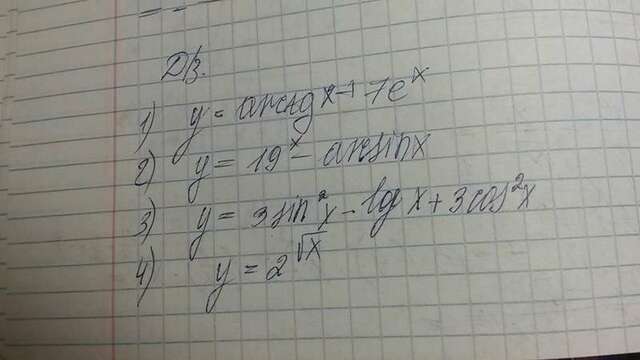 Д/з.
1) y = arctg x + 7e^x
2) y = 19^x - arcsin x
3) y = 3 sin^2 x - lg x + 3 cos^2 x
4) y = 2^√x